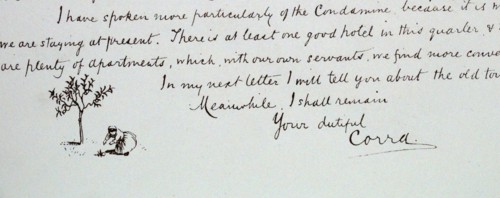 I have spoken more particularly of the Condamine, because it is
we are staying at present. There is at least one good hotel in this quarter &
are plenty of apartments, which, with our own servants, we find more conve
In my next letter I will tell you about the old to
Meanwhile, I shall remain
Your dutiful
Corra.